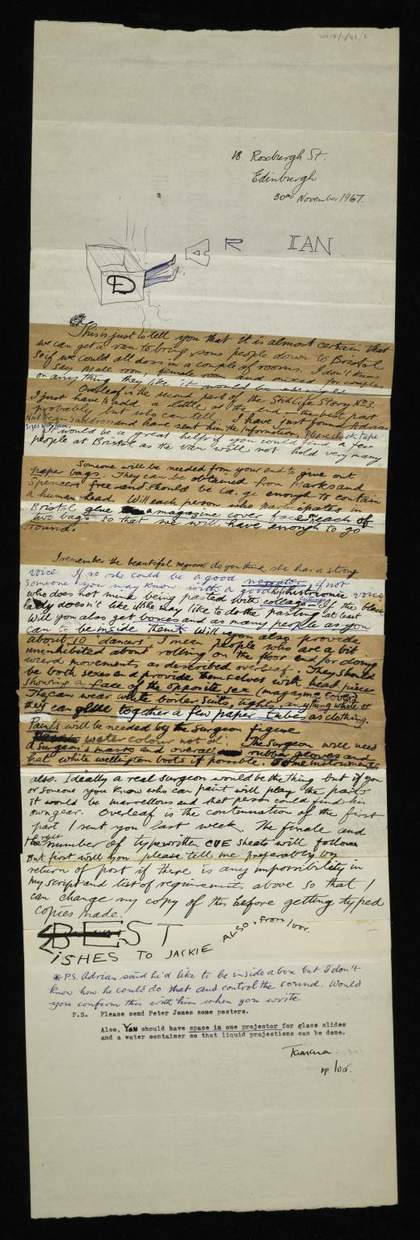 18 Roxburgh St.
Edinburgh
30th November 1967.
D EAR IAN
This is just to tell you that it is almost certain that
we can get a van to bring some people down to Bristol
so if we could all doss in a couple of rooms. I don't
say male room, female room and room for couples
or anything they like it would be
is the second part of the Skid Life Story No3.
I just have to add a little at the end
probably but who can tell. I have just found Adrian
and have sent him the information
It would be a great help if you could find a few
people at Bristol as the van will not hold very many
Someone will be needed from your end to give out
paper bags. They can be obtained from Marks and
Spencers free and should be large enough to contain
a human head. Will each person who participates in
Bristol glue a magazine cover face each of
two bags so that we will have enough to go
round.
I remember the beautiful negress do you think she has a strong
voice. If so she could be a good narrator if not
someone you may know with a good histrionic voice
who does not mind being pasted with collage. If the blane
lady doesn't like it she may like to do the pasting at least
Will you also get boxes and as many people as you
can to be inside them. Will you also provide
about 10 dancers. I mean people who are a bit
uninhibited about rolling on the floor and for doing
weird movements, as described overleaf. They should
be both sexes and provide themselves with head pieces
showing a face of the opposite sex (magazine cover)
They can wear white boiler suits, tights, anything white or
they can glue together a few paper tubes as clothing.
Paints will be needed by the surgeon figure
water colour not oil. The surgeon will need
a surgeon's mask and overall rubber gloves and
half white wellington boots if possible. Some instruments
also. Ideally a real surgeon would be the thing but if you
or someone you know who can paint will play the part
it would be marvellous and that person could find his
own gear. Overleaf is the continuation of the first
part I sent you last week. The finale and
the number of typewritten CUE sheets will follow
But first will you please tell me preferably by
return of post if there is any impossibility in
my script and list of requirements above so that I
can change my copy of this before getting typed
copies made.
BEST
WISHES TO JACKIE ALSO, from
P.S. Adrian said he'd like to be inside a box but I don't
know how he could do that and control the sound. Would
you confirm this with him when you write
P.S. Please send Peter Jones some posters.
Also, YOU should have space in one projector for glass slides
and a water container so that liquid projections can be done.